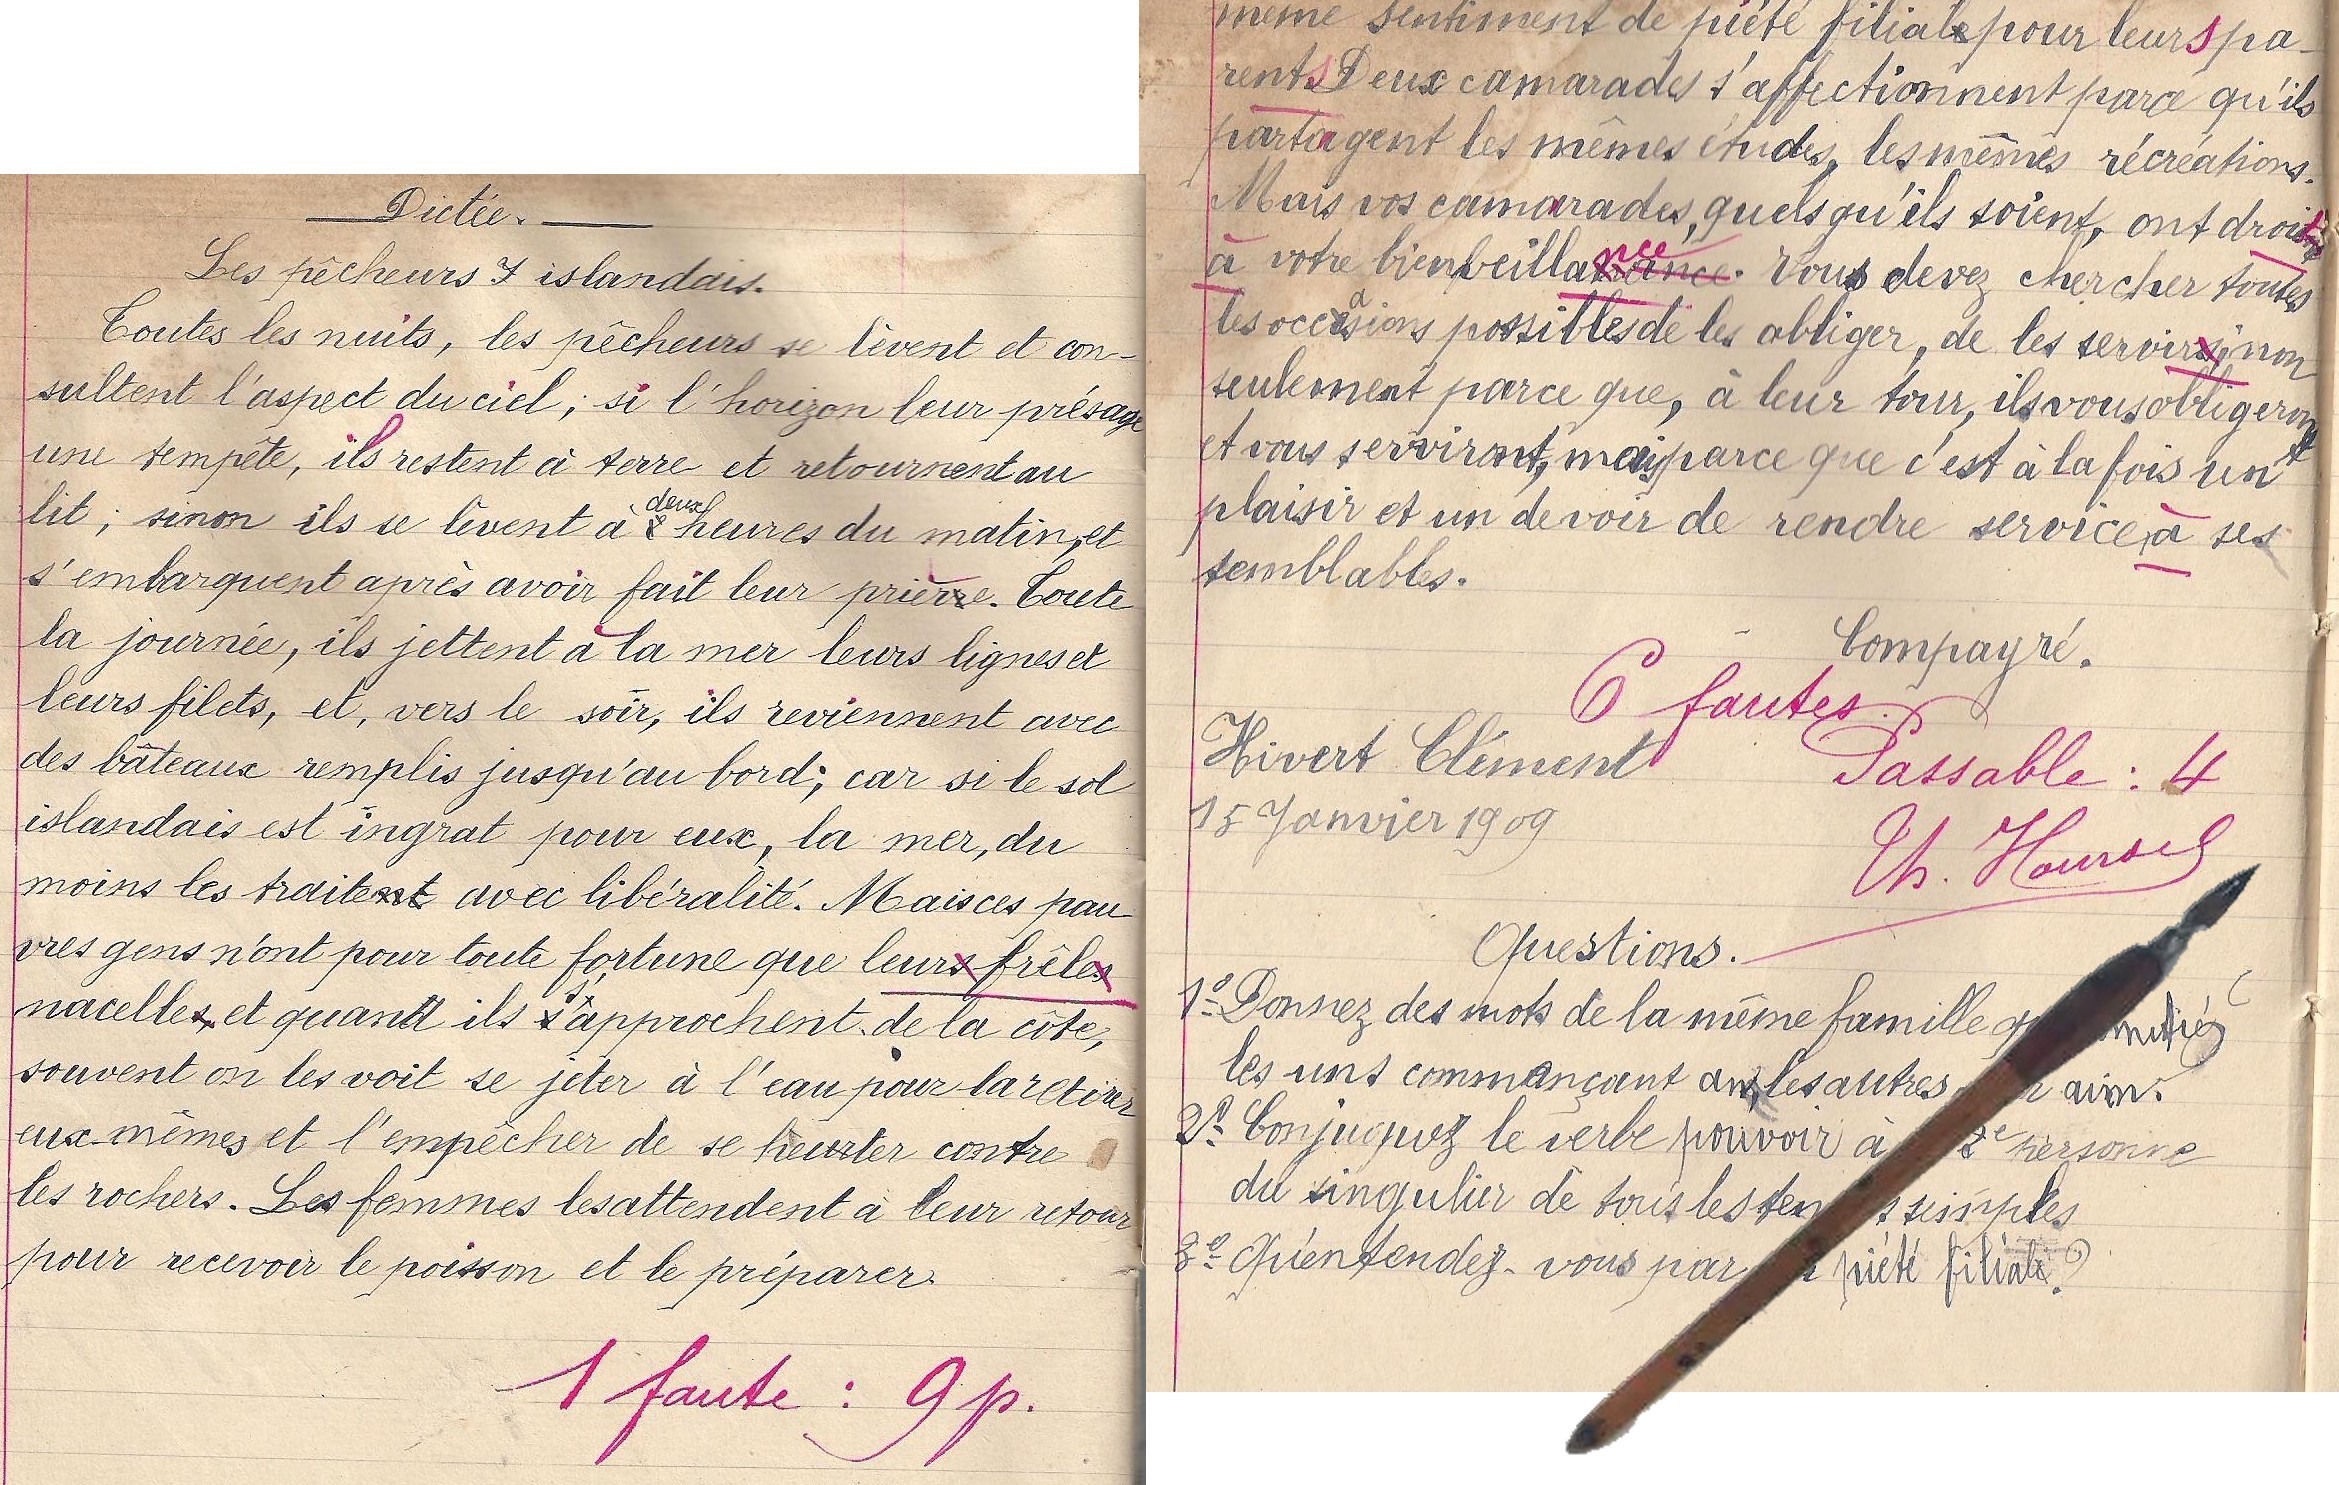 Dictée.
Les pêcheurs islandais.
Toutes les nuits, les pêcheurs se lèvent et con-
sultent l'aspect du ciel; si l'horizon leur présage
une tempête, ils restent à terre et retournent au
lit; sinon ils se lèvent à deux heures du matin, et
s'embarquent après avoir fait leur prière. Toute
la journée, ils jettent à la mer leurs lignes et
leurs filets, et, vers le soir, ils reviennent avec
des bâteaux remplis jusqu'au bord; car si le sol
islandais est ingrat pour eux, la mer, du
moins les traite avec libéralité. Mais ces pau
vres gens n'ont pour toute fortune que leurs frêles
nacelles, et quand ils s'approchent de la côte,
souvent on les voit se jeter à l'eau pour la retirer
eux-mêmes et l'empêcher de se heurter contre
les rochers. Les femmes les attendent à leur retour
pour recevoir le poisson et le préparer.
1 faute : 9 p.
même sentiment de piété filiale pour leurs pa-
rents Deux camarades s'affectionnent parce qu'ils
partagent les mêmes études, les mêmes récréations.
Mais vos camarades, quels qu'ils soient, ont droit
à votre bienveillance. Vous devez chercher toutes
les occasions possibles de les obliger, de les servir, non
seulement parce que, à leur tour, ils vous obligeront
et vous serviront, mais parce que c'est à la fois un
plaisir et un devoir de rendre service à ses
semblables.
Compayré.
6 fautes.
Hivert Clément
Passable : 4
15 Janvier 1909
Th. Hoursel
Questions.
1º Donnez des mots de la même famille
les uns commançant les autres aim.
2º Conjuguez le verbe pouvoir à 2e personne
du singulier de tous les simples
3º Qu'entendez-vous par piété filiale?